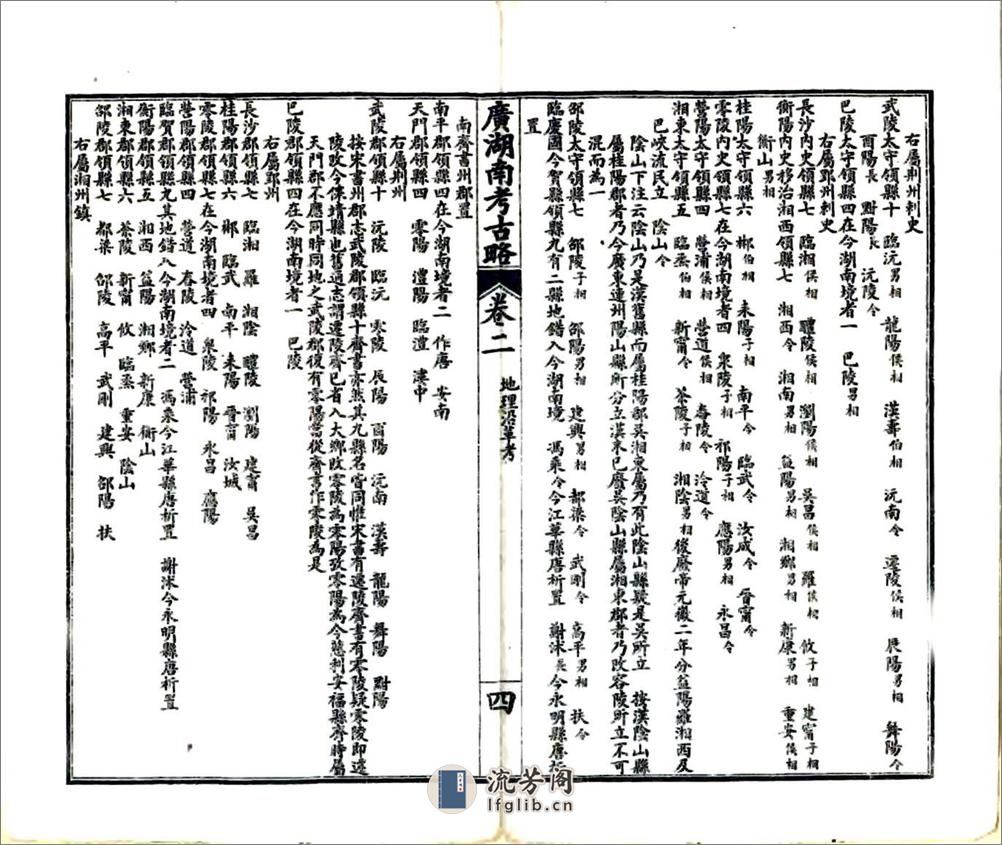 右屬荆州刺史
武陵太守領縣十 臨沅男相 龍陽侯相 漢壽伯相 沅南令 遷陵侯相 辰陽男相 舞陽令
酉陽長 黚陽長 沅陵令
巴陵太守領縣四在今湖南境者一 巴陵男相
右屬郢州刺史
長沙內史領縣七 臨湘侯相 醴陵侯相 瀏陽侯相 吳昌侯相 羅侯相 攸子相 建甯子相
衡陽內史移治湘西領縣七 湘西令 湘南男相 益陽男相 湘鄉男相 新康男相 重安侯相
衡山男相
桂陽太守領縣六 郴伯相 耒陽子相 南平令 臨武令 汝成令 晉甯令
零陵內史領縣七在今湖南境者四 泉陵子相 祁陽子相 應陽男相 永昌令
營陽太守領縣四 營浦侯相 營道侯相 舂陵令 泠道令
湘東太守領縣五 臨烝伯相 新甯令 茶陵子相 湘陰男相後廢帝元徽二年分益陽羅湘西及
巴峽流民立 陰山令
陰山下注云陰山乃是漢舊縣而屬桂陽郡吳湘東屬乃有此陰山縣疑是吳所立 按漢陰山縣
屬桂陽郡者乃今廣東連州陽山縣所分立漢末已廢吳陰山縣屬湘東郡者乃改容陵所立不可
混而為一
邵陵太守領縣七 邵陵子相 邵陽男相 建興男相 都梁令 武剛令 高平男相 扶令
臨慶國今賀縣領縣九有二縣地錯入今湖南境 馮乘令今江華縣唐析置 謝沭長今永明縣唐析
置
廣湖南考古略 卷二 地理沿革考 四
南齊書州郡置
南平郡領縣四在今湖南境者二 作唐 安南
天門郡領縣四 零陽 澧陽 臨澧 漊中
右屬荆州
武陵郡領縣十 沅陵 臨沅 零陵 辰陽 酉陽 沅南 漢壽 龍陽 舞陽 黚陽
按宋書州郡志武陵郡領縣十齊書亦然其九縣名皆同惟宋書有遷陵齊書有零陵疑零陵即遷
陵改今保靖縣也舊通志謂遷陵齊已省入大鄉改零陵為零陽攷零陽為今慈利安福縣齊時屬
天門郡不應同時同地之武陵郡復有零陽當從齊書作零陵為是
巴陵郡領縣四在今湖南境者一 巴陵
右屬郢州
長沙郡領縣七 臨湘 羅 湘陰 醴陵 瀏陽 建甯 吳昌
桂陽郡領縣六 郴 臨武 南平 耒陽 晉甯 汝城
零陵郡領縣七在今湖南境者四 泉陵 祁陽 永昌 應陽
營陽郡領縣四 營道 舂陵 泠道 營浦
臨賀郡領縣九其地錯入今湖南境者二 馮乘今江華縣唐析置 謝沭今永明縣唐析置
衡陽郡領縣五 湘西 益陽 湘鄉 新康 衡山
湘東郡領縣六 茶陵 新甯 攸 臨烝 重安 陰山
邵陵郡領縣七 都梁 邵陵 高平 武剛 建興 邵陽 扶
右屬湘州鎮
流芳阁
lfglib.cn